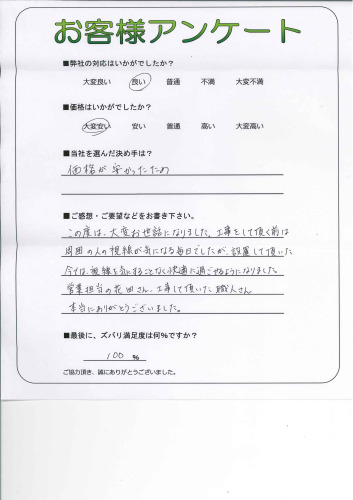 お客様アンケート
■弊社の対応はいかがでしたか？
大変良い 良い 普通 不満 大変不満
■価格はいかがでしたか？
大変安い 安い 普通 高い 大変高い
■当社を選んだ決め手は？
価格が安かったため
■ご感想・ご要望などをお書き下さい。
この度は、大変お世話になりました。工事をして頂く前は
周囲の人の視線が気になる毎日でしたが、設置して頂いた
今では、視線を気にすることなく快適に過ごせるようになりました。
営業担当の花田さん、工事して頂いた職人さん
本当にありがとうございました。
■最後に、ズバリ満足度は何%ですか？
100 %
ご協力頂き、誠にありがとうございました。